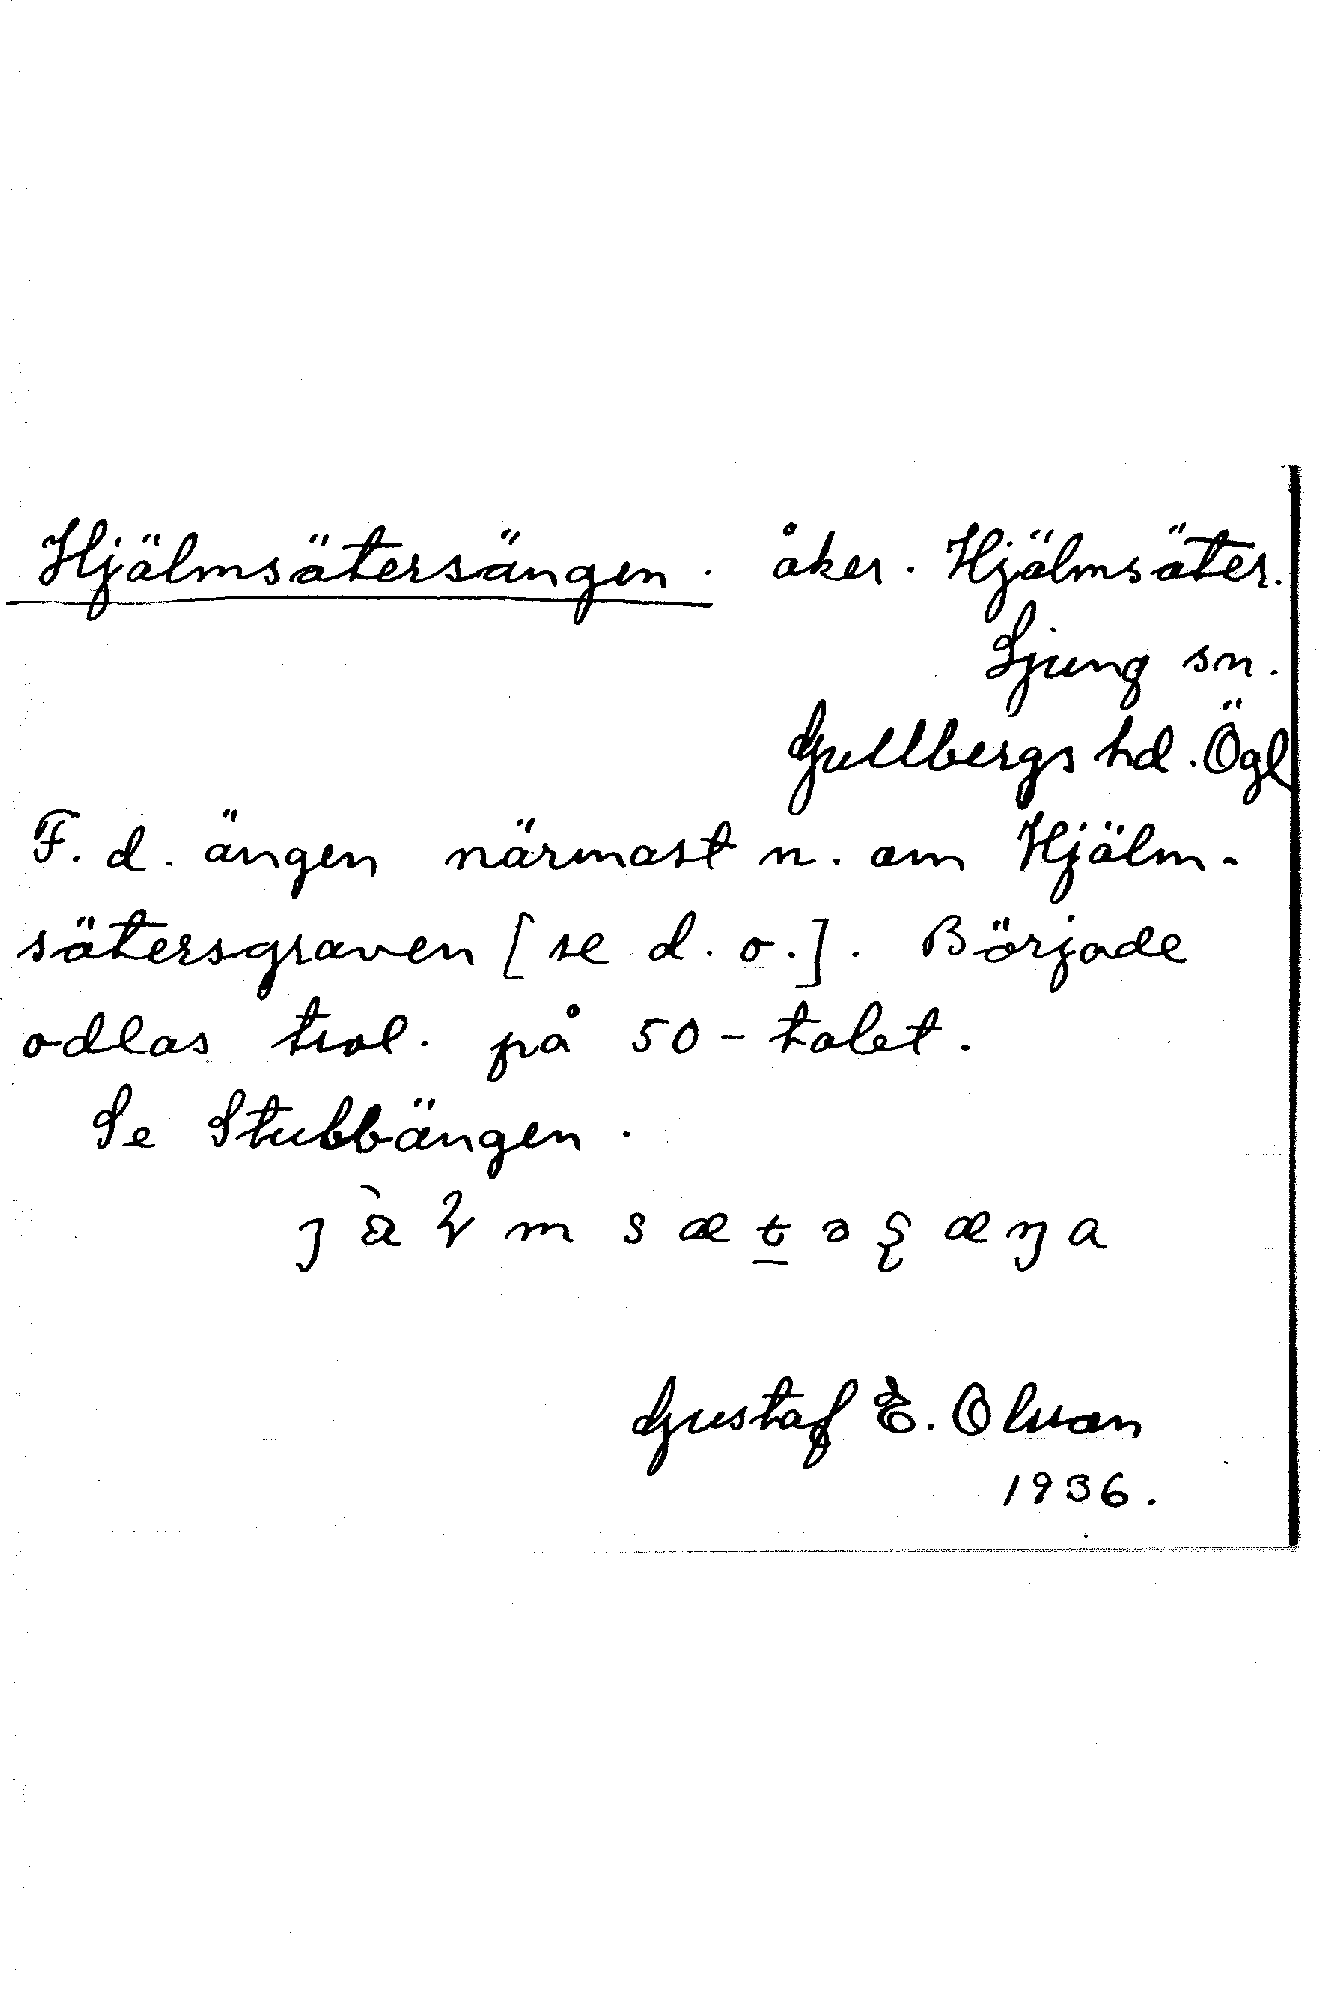 Hjälmsätersängen. åker. Hjälmsäter.
Ljung sn.
Gullbergs hd. Ögl
F. d. ängen närmast n. om Hjälm-
sätersgraven [se d. o.]. Började
odlas trol. på 50-talet.
Se Stubbängen.
Gustaf E. Olson
1936.